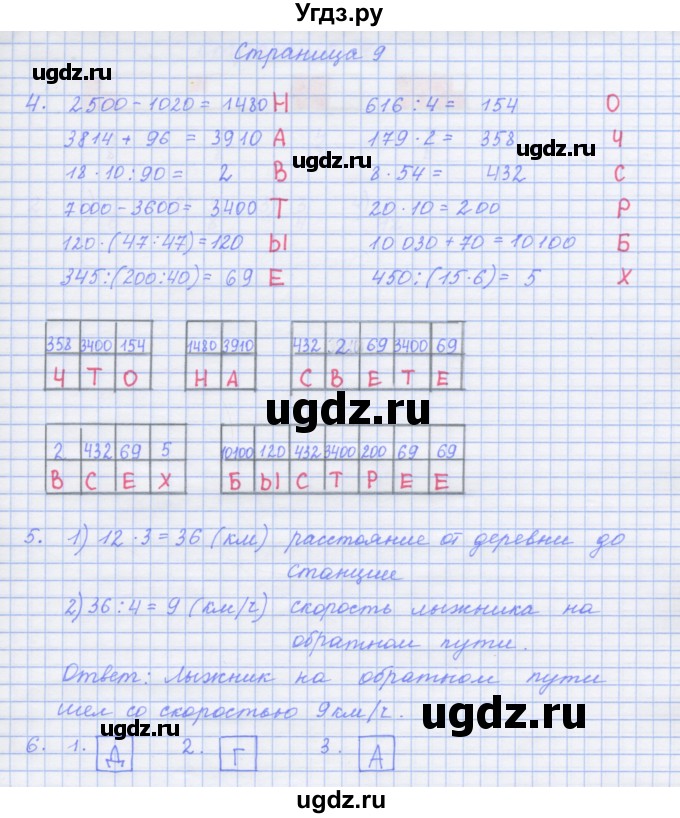 Угдз.ру
Страница 9
ugdz.ru
4. 2500 - 1020 = 1480 Н 616 : 4 = 154 О
3814 + 96 = 3910 А 179 · 2 = 358 Ч
ugdz.ru ugdz.ru
18 · 10 : 90 = 2 В 8 · 54 = 432 С
7000 - 3600 = 3400 Т 20 · 10 = 200 Р
120 · (47 : 47) = 120 Ы 10 030 + 70 = 10100 Б
345 : (200 : 40) = 69 Е 450 : (15 · 6) = 5 Х
358 3400 154 1480 3910 432 2 69 3400 69
Ч Т О Н А С В Е Т Е
ugdz.ru
2 432 69 5 10100 120 432 3400 200 69 69
В С Е Х Б Ы С Т Р Е Е
5. 1) 12 · 3 = 36 (км) расстояние от деревни до
станции
ugdz.ru
2) 36 : 4 = 9 (км/г) скорость лыжника на
обратном пути.
Ответ: лыжник на обратном пути
шел со скоростью 9 км/г.
ugdz.ru
6. 1. Д 2. Г 3. А
ugdz.ru